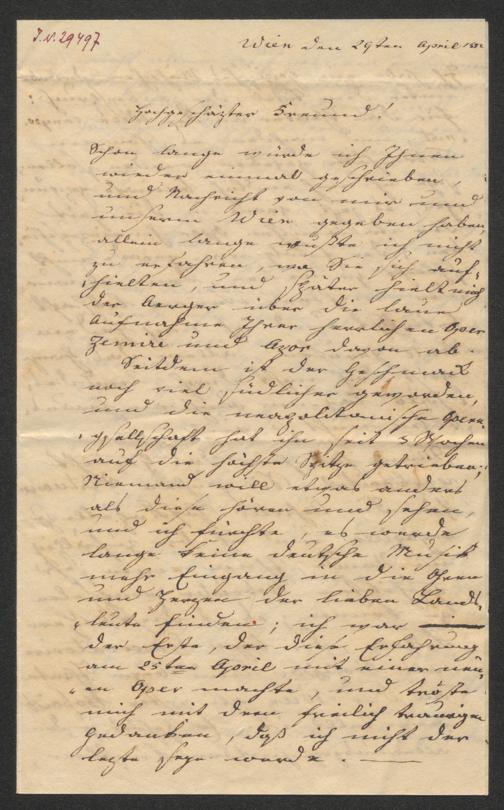 I.N. 29497
Wien den 29ten April 182
Hochgeschäzter Freund!
Schon lange würde ich Ihnen
wieder einmal geschrieben,
und Nachricht von mir und
unserm Wien gegeben haben,
allein lange wußte ich nicht
zu erfahren, wo Sie sich auf-
hielten, und später hielt mich
der Aerger über die laue
Aufnahme Ihrer herrlichen Oper
Zemire und Azor davon ab.
Seitdem ist der Geschmack
noch viel südlicher geworden,
und die neapolitanische Opern-
gsellschaft hat ihn seit 3 Wochen
auf die höchste Spitze getrieben;
Niemand will etwas anders
als diese hören und sehen,
und ich fürchte, es werde
lange keine deutsche Musik
mehr Eingang in die Ohren
und Herzen der lieben Lands-
leute finden; ich war
der Erste, der diese Erfahrung
am 25ten April mit einer neu-
en Oper machte, und tröste
mich mit dem freilich traurigen
Gedanken, daß ich nicht der
lezte seyn werde.